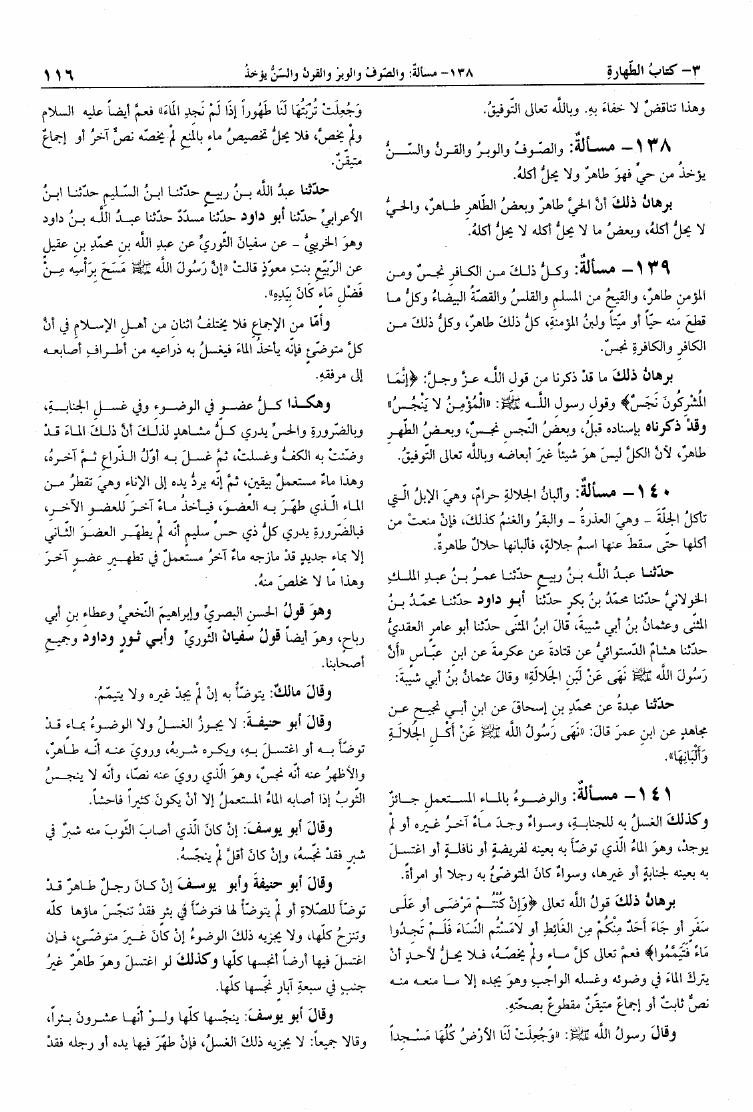 ٣- كتابُ الطَّهارةِ
١٣٨- مسألة: والصّوفُ والوبرُ والقرنُ والسّنُّ يؤخذُ
١١٦
وهذا تناقضٌ لا خفاءَ بهِ. وباللَّه تعالى التّوفيقُ.
١٣٨- مسألةٌ: والصّوفُ والوبرُ والقرنُ والسّنُّ
يؤخذُ من حيٍّ فهوَ طاهرٌ ولا يحلُّ أكلهُ.
برهانُ ذلكَ أنَّ الحيَّ طاهرٌ وبعضُ الطّاهرِ طاهرٌ، والحيُّ
لا يحلُّ أكلهُ، وبعضُ ما لا يحلُّ أكله لا يحلُّ أكلهُ.
١٣٩- مسألةٌ: وكلُّ ذلكَ منَ الكافرِ نجسٌ ومن
المؤمنِ طاهرٌ، والقيحُ من المسلمِ والقلسُ والقصّةُ البيضاءُ وكلُّ ما
قطعَ منه حيّاً أو ميّتاً ولبنُ المؤمنةِ، كلُّ ذلكَ طاهرٌ، وكلُّ ذلكَ منَ
الكافرِ والكافرةِ نجسٌ.
برهانُ ذلكَ ما قدْ ذكرنا من قولِ اللَّه عزَّ وجلَّ: ﴿إنَّمَا
المُشْرِكُونَ نَجَسٌ﴾ وقولِ رسولِ اللَّه ﷺ: «الْمُؤْمِنُ لا يَنْجُسُ»
وقدْ ذكرناه بإسنادهِ قبلُ، وبعضُ النّجسِ نجسٌ، وبعضُ الطّهرِ
طاهرٌ، لأنَّ الكلَّ ليسَ هوَ شيئاً غيرَ أبعاضه وباللَّه تعالى التّوفيقُ.
١٤٠- مسألةٌ: وألبانُ الجلالةِ حرامٌ، وهيَ الإبلُ الّتي
تأكلُ الجلّةَ - وهيَ العذرةُ - والبقرُ والغنمُ كذلكَ، فإنْ منعتْ من
أكلها حتّى سقطَ عنها اسمُ جلالةٍ، فألبانها حلالٌ طاهرةٌ.
حدّثنا عبدُ اللَّه بنُ ربيعٍ حدّثنا عمرُ بنُ عبدِ الملكِ
الخولانيُّ حدّثنا محمّدُ بنُ بكرٍ حدّثنا أبو داود حدّثنا محمّدُ بنُ
المثنّى وعثمانُ بنُ أبي شيبةَ، قالَ ابنُ المثنّى حدّثنا أبو عامرٍ العقديُّ
حدّثنا هشامٌ الدّستوائيُّ عن قتادةَ عن عكرمةَ عن ابنِ عبّاسٍ «أنَّ
رَسُولَ اللَّه ﷺ نَهَى عَنْ لَبَنِ الجَلالَةِ» وقالَ عثمانُ بنُ أبي شيبةَ:
حدّثنا عبدةُ عن محمّدِ بنِ إسحاقَ عن ابنِ أبي نجيحٍ عن
مجاهدٍ عن ابنِ عمرَ قالَ: «نَهَى رَسُولُ اللَّه ﷺ عَنْ أكْلِ الجَلالَةِ
وَألْبَانِهَا».
١٤١- مسألةٌ: والوضوءُ بالماءِ المستعملِ جائزٌ
وكذلكَ الغسلُ به للجنابةِ، وسواءٌ وجدَ ماءٌ آخرُ غيره أو لم
يوجدْ، وهوَ الماءُ الّذي توضّأَ به بعينه لفريضةٍ أو نافلةٍ أو اغتسلَ
به بعينه لجنابةٍ أو غيرها، وسواءٌ كانَ المتوضّئُ به رجلا أو امرأةً.
برهانُ ذلكَ قولُ اللَّه تعالى ﴿وَإِنْ كُنْتُمْ مَرْضَى أو عَلَى
سَفَرٍ أو جَاءَ أحَدٌ مِنْكُمْ مِن الغَائِطِ أو لامَسْتُم النِّسَاءَ فَلَمْ تَجِدُوا
مَاءً فَتَيَمَّمُوا﴾ فعمَّ تعالى كلَّ ماءٍ ولم يخصّهُ، فلا يحلُّ لأحدٍ أنْ
يتركَ الماءَ في وضوئه وغسله الواجبِ وهوَ يجده إلا ما منعه منه
نصٌّ ثابتٌ أو إجماعٌ متيقّنٌ مقطوعٌ بصحّتهِ.
وقالَ رسولُ اللَّه ﷺ: «وَجُعِلَتْ لَنَا الأرْضُ كُلُّهَا مَسْجِداً
وَجُعِلَتْ تُرْبَتُهَا لَنَا طَهُوراً إذَا لَمْ نَجِدِ المَاءَ» فعمَّ أيضاً عليه السلام
ولم يخصَّ، فلا يحلُّ تخصيصُ ماءٍ بالمنعِ لم يخصّه نصٌّ آخرُ أو إجماعٌ
متيقّنٌ.
حدّثنا عبدُ اللَّه بنُ ربيعٍ حدّثنا ابنُ السّليمِ حدّثنا ابنُ
الأعرابيِّ حدّثنا أبو داود حدّثنا مسدّدٌ حدّثنا عبدُ اللَّه بنُ داود
وهوَ الخريبيُّ - عن سفيانَ الثّوريِّ عن عبدِ اللَّه بنِ محمّدِ بنِ عقيلٍ
عن الرّبيّعِ بنتِ معوّذٍ قالتْ «إنَّ رَسُولَ اللَّه ﷺ مَسَحَ بِرَأْسِهِ مِنْ
فَضْلِ مَاءٍ كَانَ بِيَدِهِ».
وأمّا من الإجماعِ فلا يختلفُ اثنانِ من أهلِ الإسلامِ في أنَّ
كلَّ متوضّئٍ فإنّه يأخذُ الماءَ فيغسلُ به ذراعيه من أطرافِ أصابعه
إلى مرفقهِ.
وهكذا كلُّ عضوٍ في الوضوءِ وفي غسلِ الجنابةِ،
وبالضّرورةِ والحسِّ يدري كلُّ مشاهدٍ لذلكَ أنَّ ذلكَ الماءَ قدْ
وضّئتْ به الكفُّ وغسلتْ، ثمَّ غسلَ به أوّلُ الذّراعِ ثمَّ آخرهُ،
وهذا ماءٌ مستعملٌ بيقينٍ، ثمَّ إنّه يردُّ يده إلى الإناءِ وهيَ تقطرُ من
الماءِ الّذي طهّرَ به العضوَ، فيأخذُ ماءً آخرَ للعضوِ الآخرِ،
فبالضّرورةِ يدري كلُّ ذي حسٍّ سليمٍ أنّه لم يطهّرِ العضوَ الثّاني
إلا بماءٍ جديدٍ قدْ مازجه ماءٌ آخرُ مستعملٌ في تطهيرِ عضوٍ آخرَ
وهذا ما لا مخلصَ منهُ.
وهوَ قولُ الحسنِ البصريِّ وإبراهيمَ النّخعيِّ وعطاءِ بنِ أبي
رباحٍ، وهوَ أيضاً قولُ سفيانَ الثّوريِّ وأبي ثورٍ وداود وجميعِ
أصحابنا.
وقالَ مالكٌ: يتوضّأُ به إنْ لم يجدْ غيره ولا يتيمّمُ.
وقالَ أبو حنيفةَ: لا يجوزُ الغسلُ ولا الوضوءُ بماءٍ قدْ
توضّأَ به أو اغتسلَ بهِ، ويكره شربهُ، ورويَ عنه أنّه طاهرٌ،
والأظهرُ عنه أنّه نجسٌ، وهوَ الّذي رويَ عنه نصّاً، وأنّه لا ينجسُ
الثّوبُ إذا أصابه الماءُ المستعملُ إلا أنْ يكونَ كثيراً فاحشاً.
وقالَ أبو يوسفَ: إنْ كانَ الّذي أصابَ الثّوبَ منه شبرٌ في
شبرٍ فقدْ نجّسهُ، وإنْ كانَ أقلَّ لم ينجّسهُ.
وقالَ أبو حنيفةَ وأبو يوسفَ إنْ كانَ رجلٌ طاهرٌ قدْ
توضّأَ للصّلاةِ أو لم يتوضّأْ لها فتوضّأَ في بئرٍ فقدْ تنجّسَ ماؤها كلّه
وتنزحُ كلّها، ولا يجزيه ذلكَ الوضوءُ إنْ كانَ غيرَ متوضّئٍ، فإن
اغتسلَ فيها أرضاً أنجسها كلّها وكذلكَ لو اغتسلَ وهوَ طاهرٌ غيرُ
جنبٍ في سبعةِ آبارٍ نجّسها كلّها.
وقالَ أبو يوسفَ: ينجّسها كلّها ولوْ أنّها عشرونَ بئراً،
وقالا جميعاً: لا يجزيه ذلكَ الغسلُ، فإنْ طهّرَ فيها يده أو رجله فقدْ